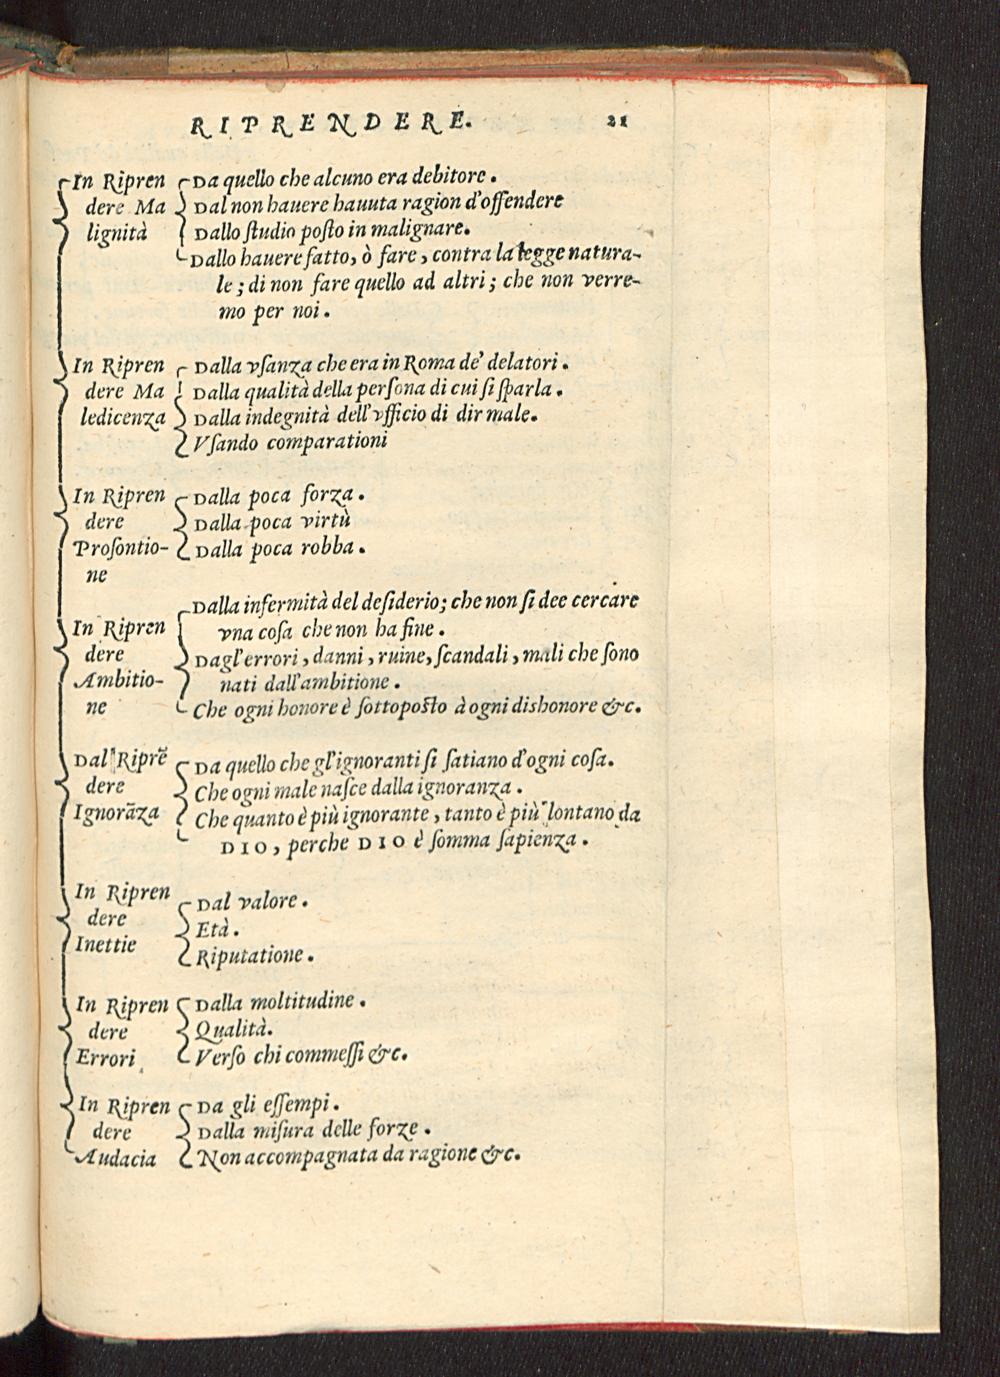 RIPRENDERE. 21
In Ripren
dere Ma
lignità
Da quello che alcuno era debitore.
Dal non hauere hauuta ragion d'offendere
Dallo studio posto in malignare.
Dallo hauere fatto, ò fare, contra la legge natura-
le; di non fare quello ad altri; che non verre-
mo per noi.
In Ripren
dere Ma
ledicenza
Dalla vsanza che era in Roma de' delatori.
Dalla qualità della persona di cui si sparla.
Dalla indegnità dell'vfficio di dir male.
Vsando comparationi
In Ripren
dere
Prosontio-
ne
Dalla poca forza.
Dalla poca virtù
Dalla poca robba.
In Ripren
dere
Ambitio-
ne
Dalla infermità del desiderio; che non si dee cercare
vna cosa che non ha fine.
Dagl'errori, danni, ruine, scandali, mali che sono
nati dall'ambitione.
Che ogni honore è sottoposto à ogni dishonore &c.
Dal Riprẽ
dere
Ignorãza
Da quello che gl'ignoranti si satiano d'ogni cosa.
Che ogni male nasce dalla ignoranza.
Che quanto è più ignorante, tanto è più lontano da
DIO, perche DIO è somma sapienza.
In Ripren
dere
Inettie
Dal valore.
Età.
Riputatione.
In Ripren
dere
Errori
Dalla moltitudine.
Qualità.
Verso chi commessi &c.
In Ripren
dere
Audacia
Da gli essempi.
Dalla misura delle forze.
Non accompagnata da ragione &c.